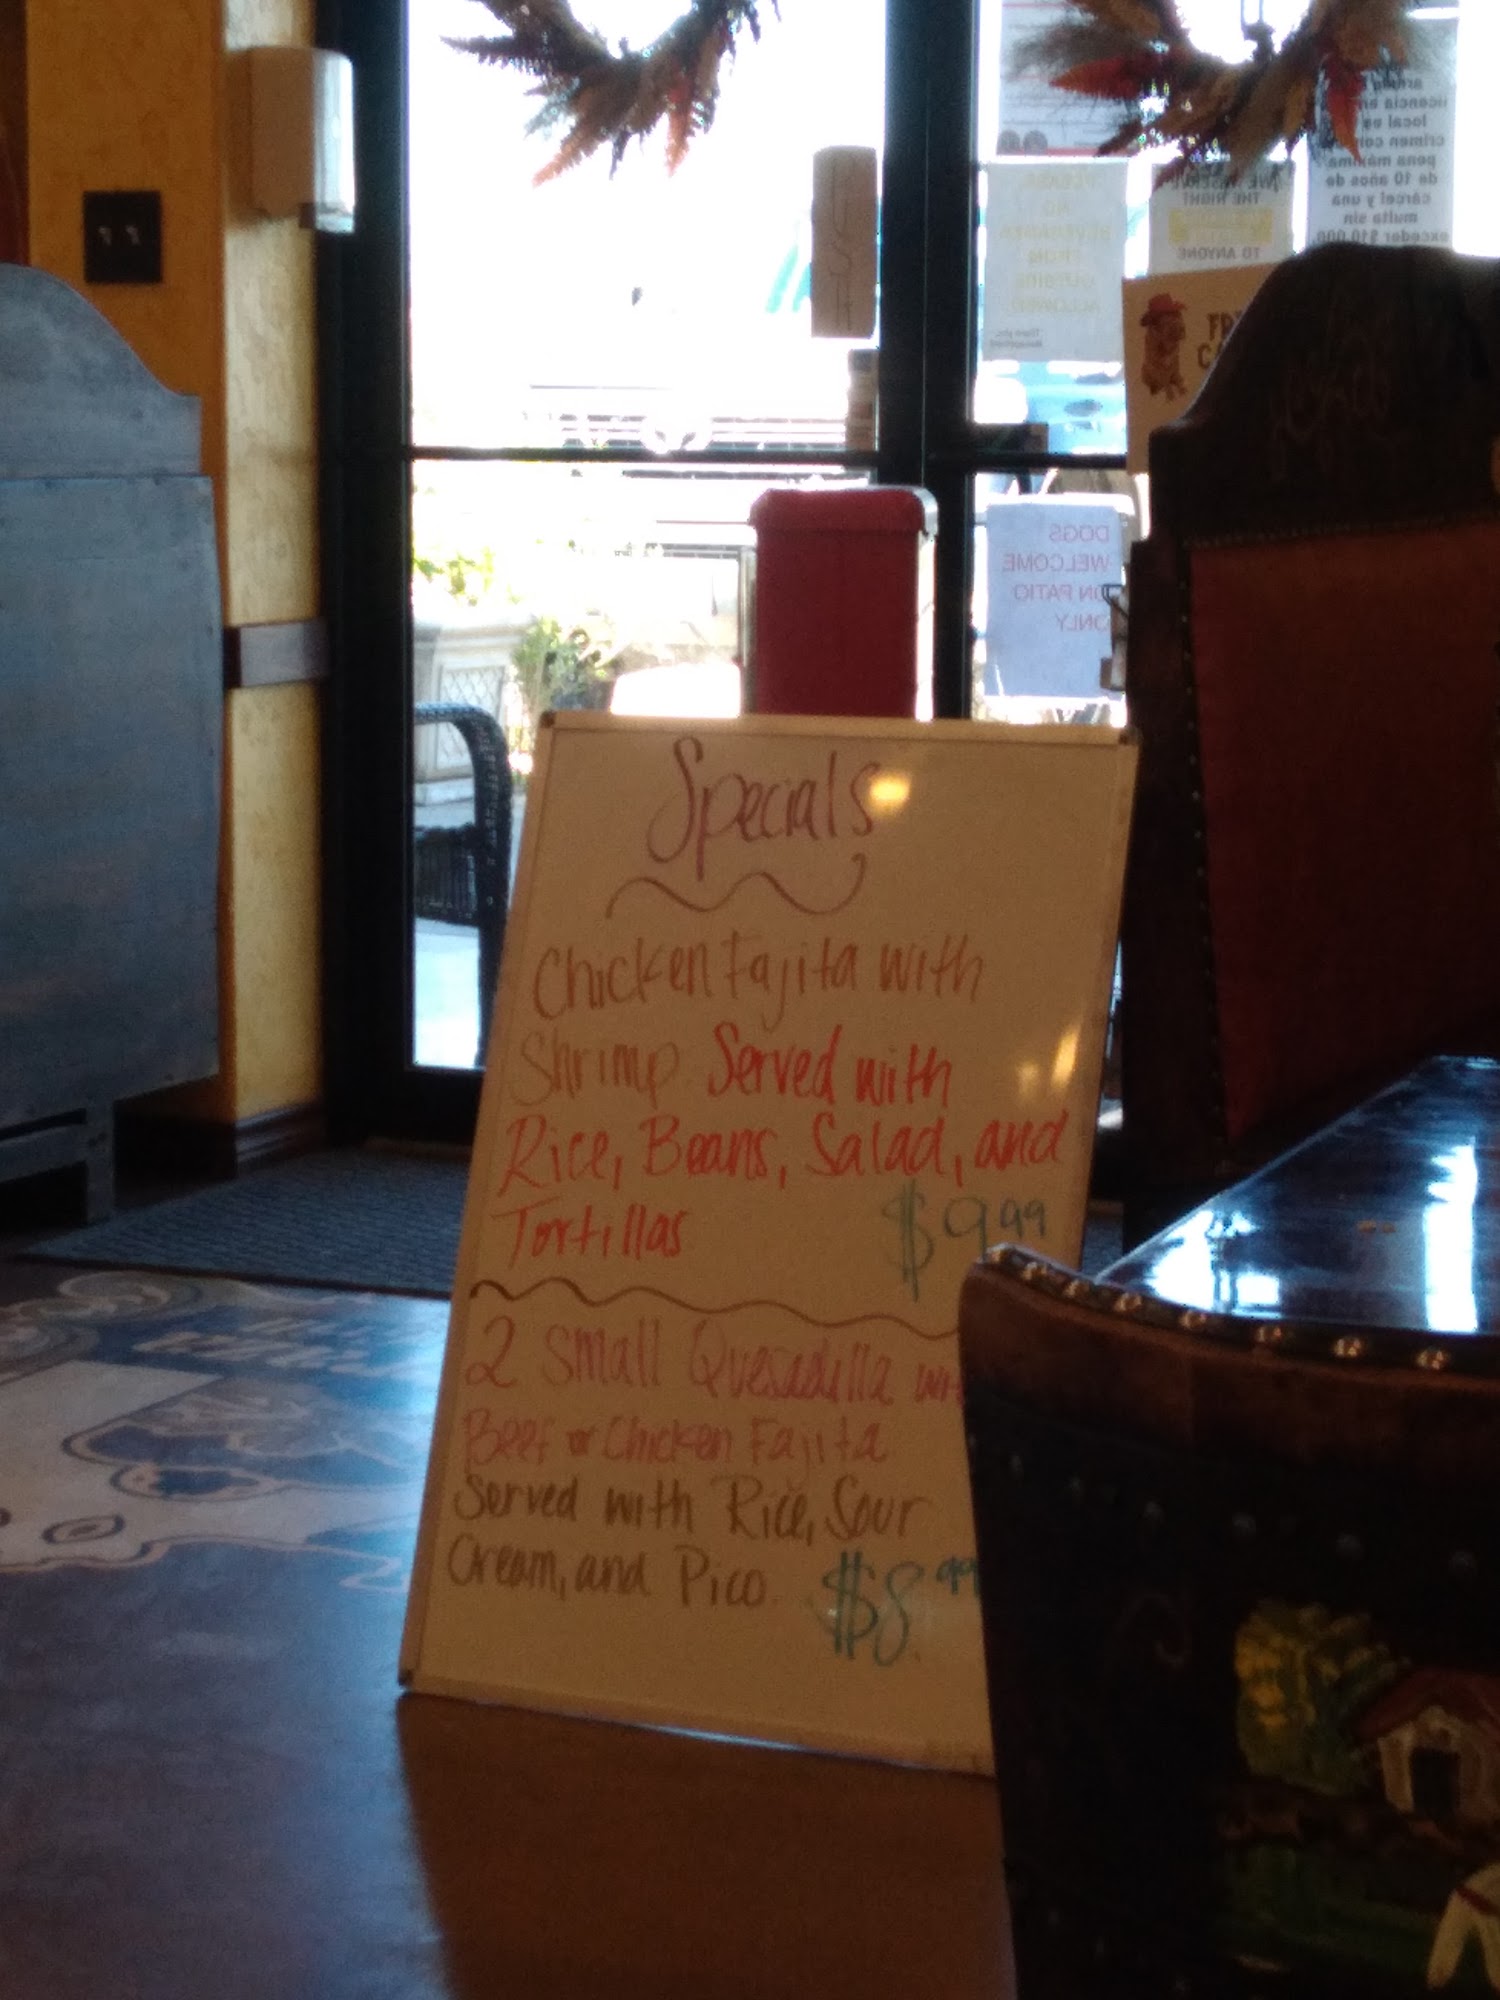 arma
licencia en
local es
crimen con
pena máxima
de 10 años de
cárcel y una
multa sin
exceder $10,000
THE RIGHT
TO ANYONE
PLEASE
NO
FROM
OUTSIDE
ALLOWED
DOGS
WELCOME
ON PATIO
ONLY
Specials
Chicken Fajita with
Shrimp Served with
Rice, Beans, Salad, and
Tortillas $9.99
2 Small Quesadilla
Beef or Chicken Fajita
Served with Rice, Sour
Cream, and Pico. $8.99